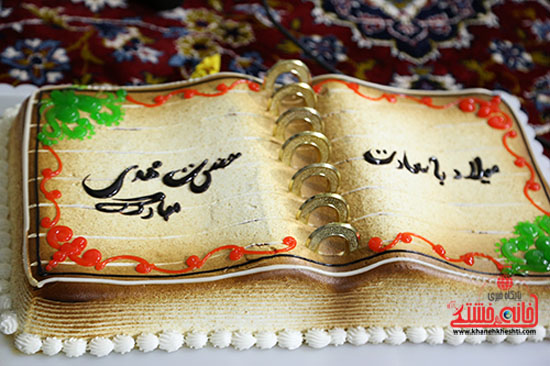 میلاد با سعادت
حضرت مهدی
مبارک
پایگاه خبری
خانه خشتی
www.khanehkheshti.com